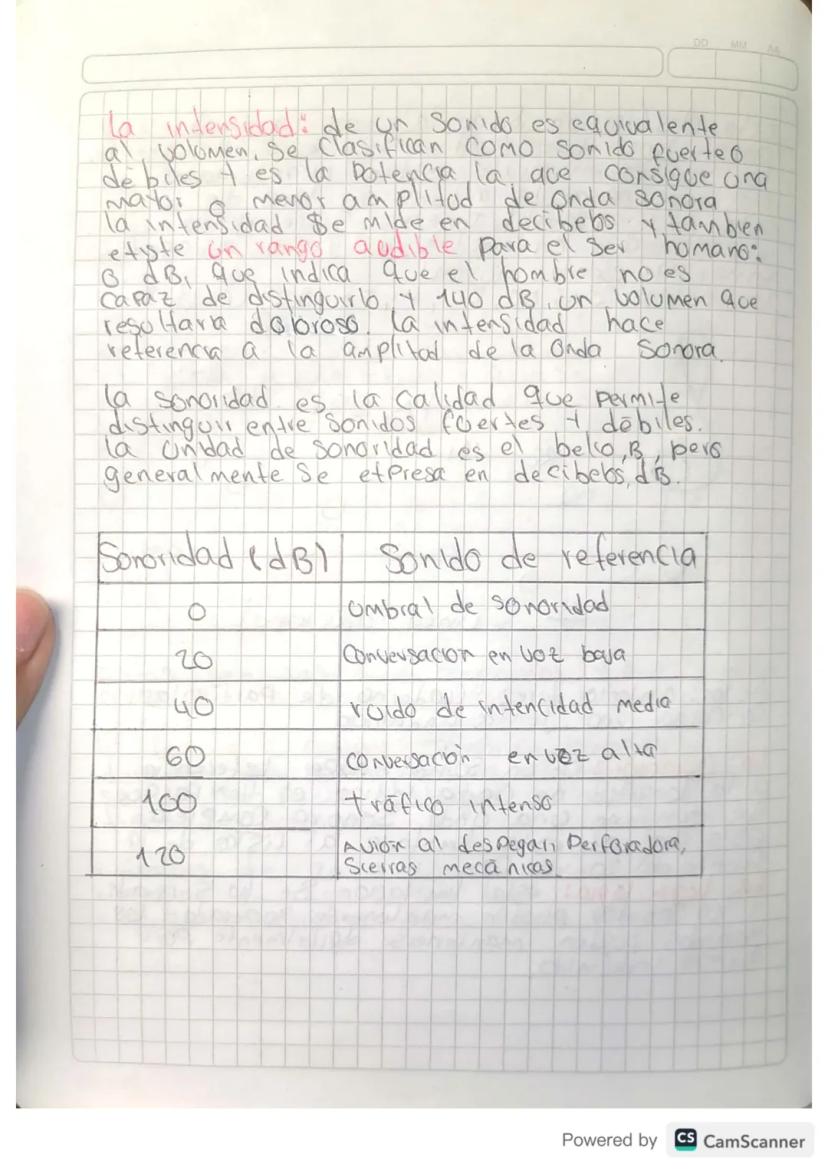 DD MM AA
la intensidad: de un sonido es equivalente
al volumen. Se clasifican como sonido fuerte o
débiles y es la potencia la que consigue una
mayor o menor amplitud de onda sonora
la intensidad se mide en decibelos y tambien
existe un rango audible para el ser humano:
0 dB, que indica que el hombre no es
capaz de distinguirlo y 140 dB, un volumen que
resultara doloroso. la intensidad hace
referencia a la amplitud de la onda sonora.
la sonoridad es la calidad que permite
distinguir entre sonidos fuertes y débiles.
la unidad de sonoridad es el belio, B, pero
generalmente se expresa en decibelos, dB.
Sonoridad (dB) Sonido de referencia
0 umbral de sonoridad
20 Conversacion en voz baja
40 ruido de intencidad media
60 conversación en voz alta
100 tráfico intenso
120 Avion al despegar, Perforadora,
Sierras mecánicas
Powered by CS CamScanner